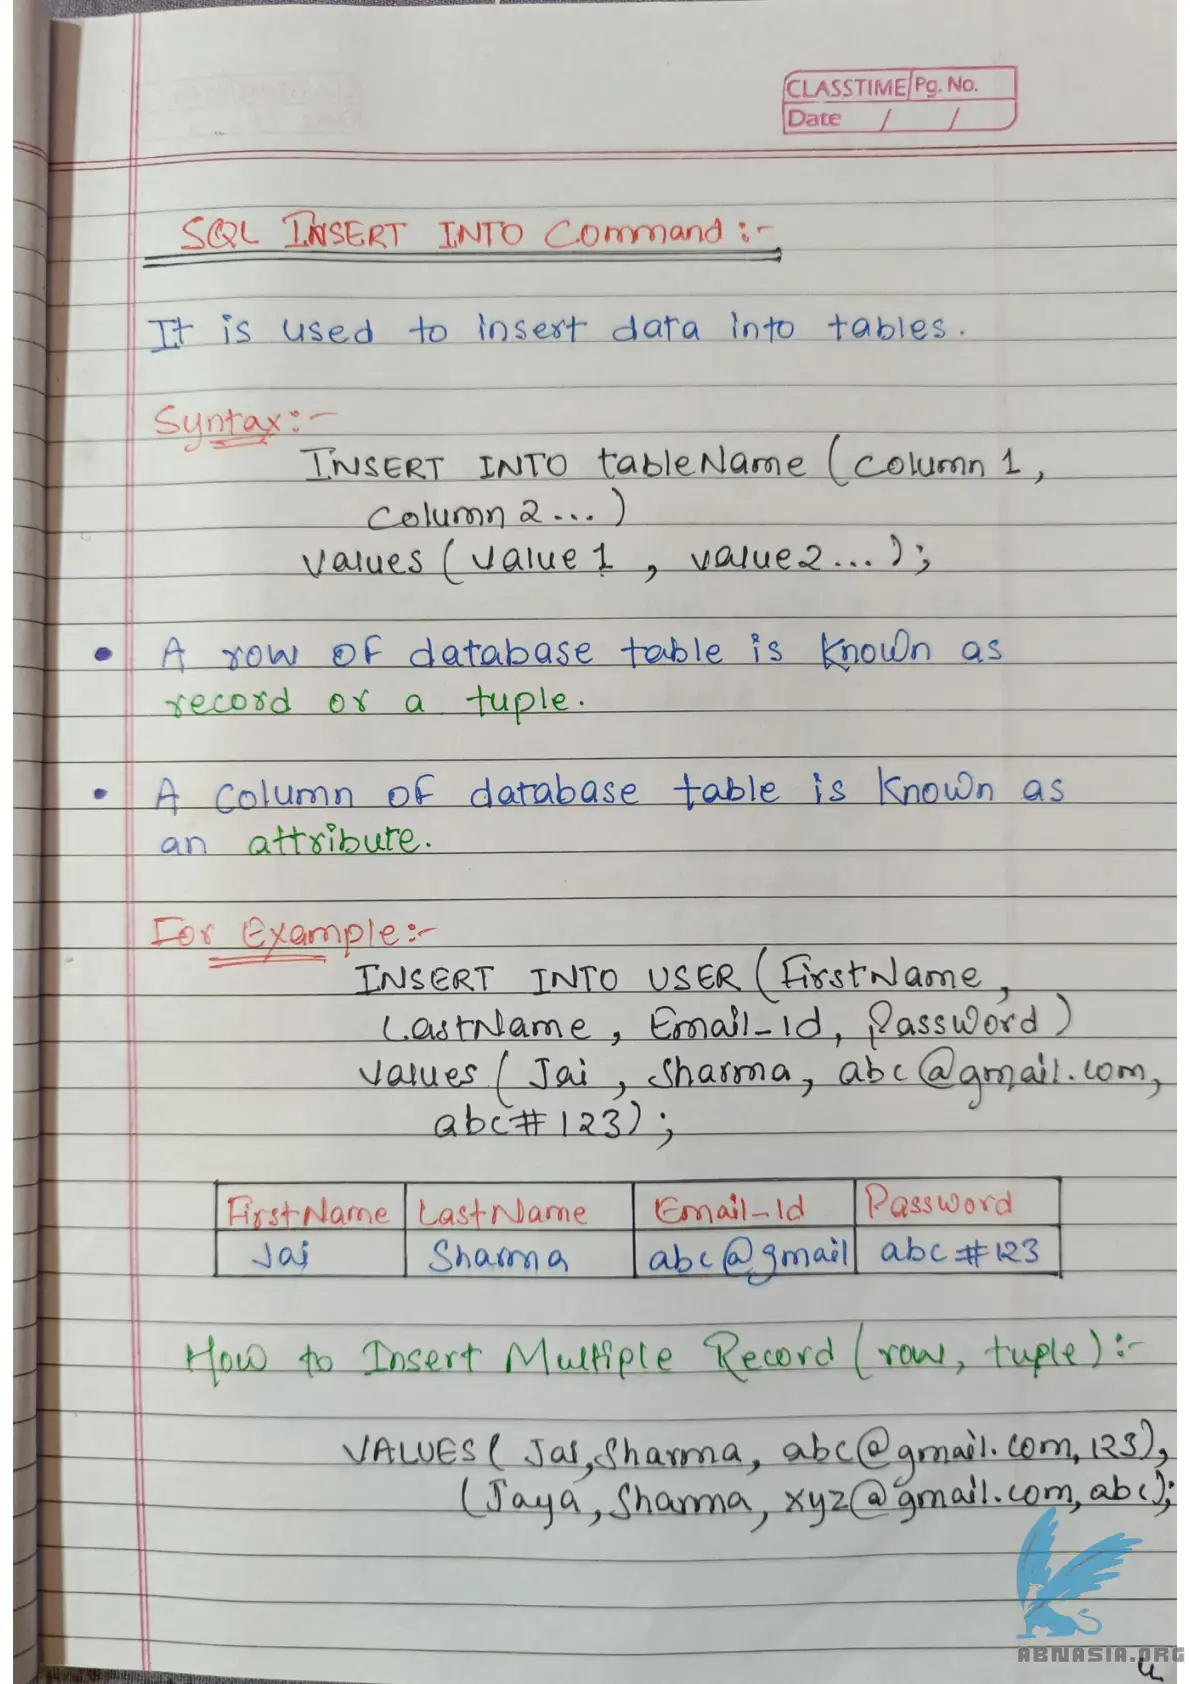 CLASSTIME Pg. No.
Date / /
SQL INSERT INTO Command :-
It is used to insert data into tables.
Syntax:-
INSERT INTO tableName (column 1,
column 2 ... )
values ( value 1 , value 2 ... );
• A row of database table is known as
record or a tuple.
• A column of database table is known as
an attribute.
For Example:-
INSERT INTO USER ( FirstName,
LastName , Email-Id, Password )
values ( Jai , Sharma, abc@gmail.com,
abc#123 );
FirstName LastName Email-Id Password
Jai Sharma abc@gmail abc#123
How to Insert Multiple Record ( row, tuple ) :-
VALUES ( Jai, Sharma, abc@gmail.com, 123),
( Jaya, Sharma, xyz@gmail.com, abc);
ABNASIA.ORG
4